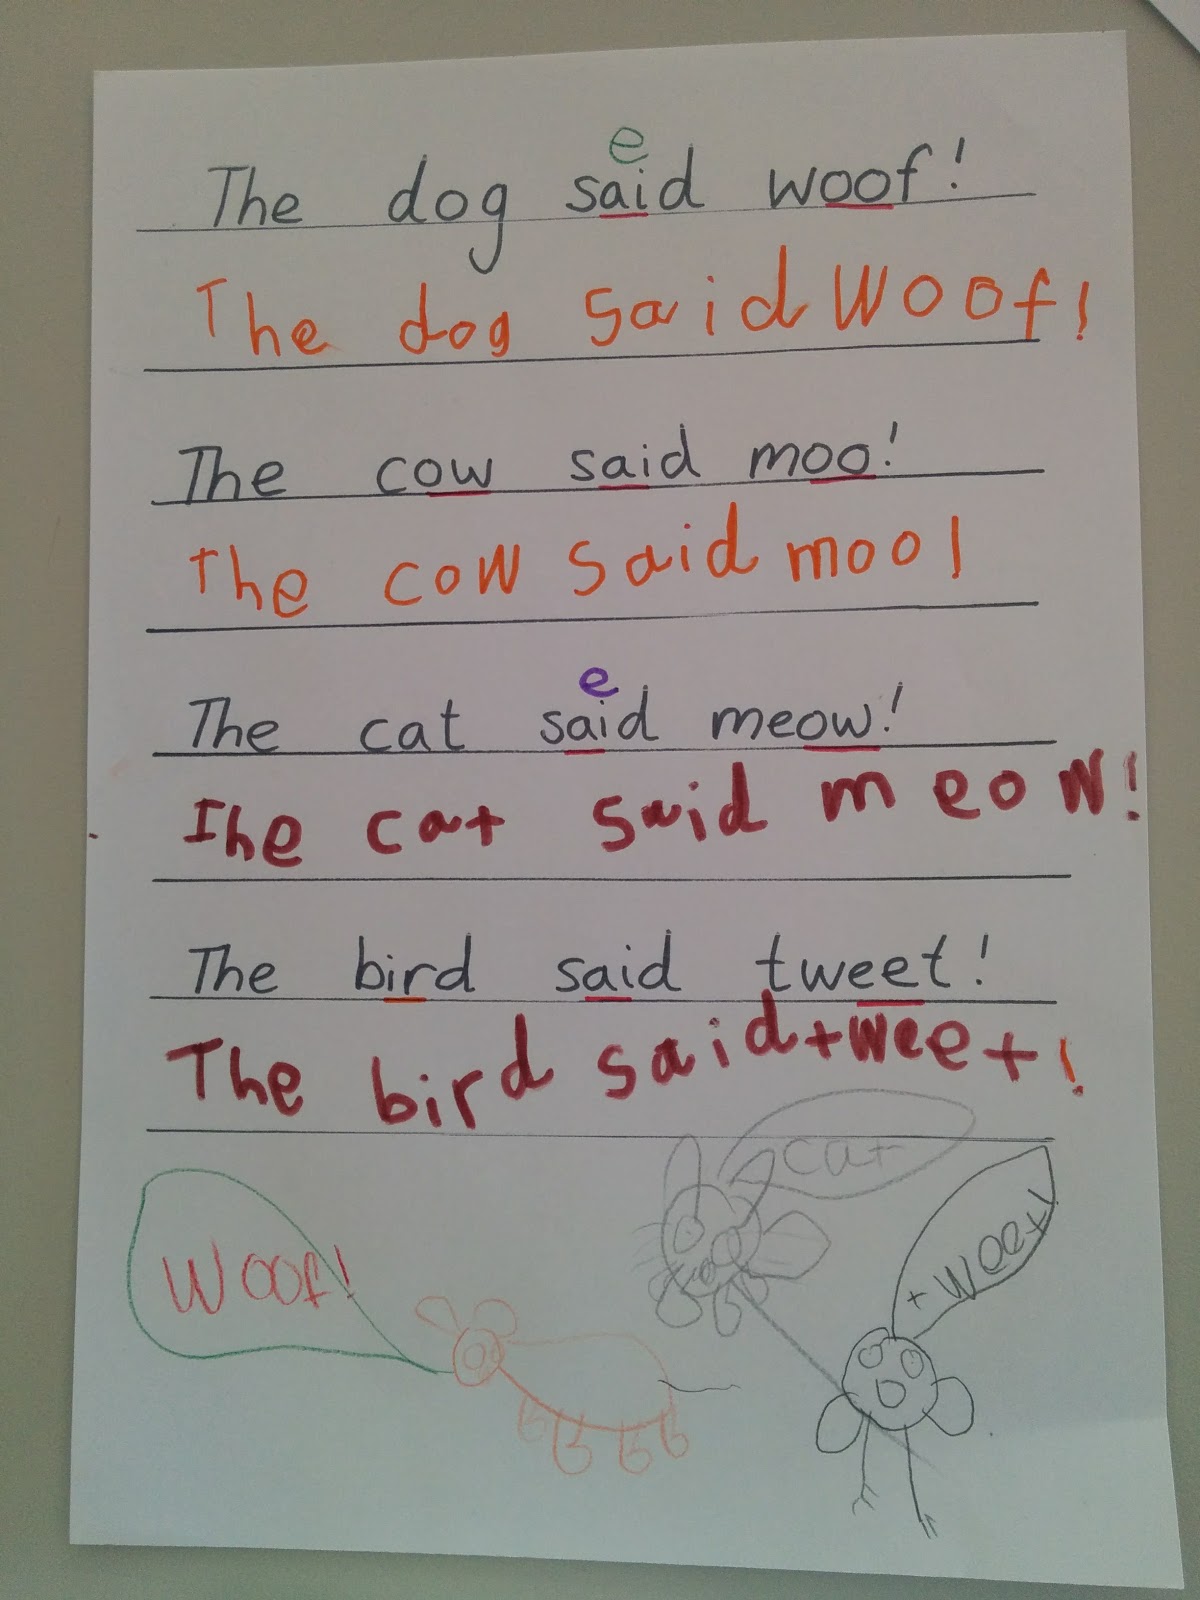 e
The dog said woof!
The dog said Woof!
The cow said moo!
The cow said moo!
e
The cat said meow!
The cat said meow!
The bird said tweet!
The bird said tweet!
cat
tweet!
Woof!